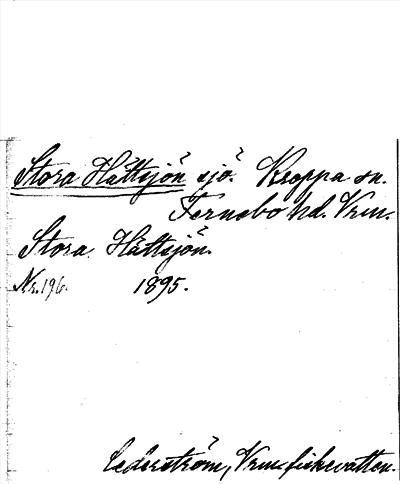 Stora Hättsjön sjö. Kroppa sn.
Fernebo hd. Vrm.
Stora Hättsjön.
Nr. 196. 1895.
Cederström, Vrm fiskevatten.